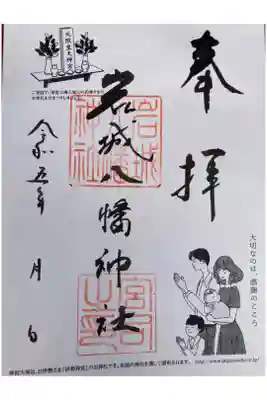 奉拝
岩城八幡神社
令和五年 月 日
天照皇大神宮
大切なのは、感謝のこころ
岩城八幡神社
宮司之印